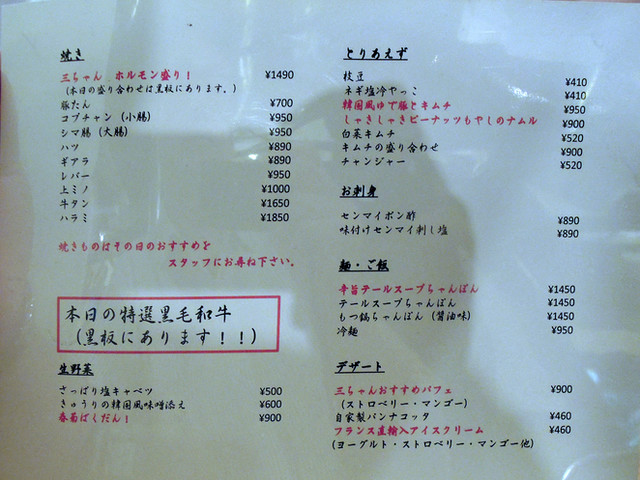 焼き
三ちゃん ホルモン盛り! ¥1490
(本日の盛り合わせは黒板にあります。)
豚たん ¥700
コプチャン(小腸) ¥950
シマ腸(大腸) ¥950
ハツ ¥890
ギアラ ¥890
レバー ¥950
上ミノ ¥1000
牛タン ¥1650
ハラミ ¥1850
焼きものはその日のおすすめを
スタッフにお尋ね下さい。
本日の特選黒毛和牛
(黒板にあります!!)
生野菜
さっぱり塩キャベツ ¥500
きゅうりの韓国風味噌添え ¥600
春菊ばくだん! ¥900
とりあえず
枝豆 ¥410
ネギ塩冷やっこ ¥410
韓国風ゆで豚とキムチ ¥950
しゃきしゃきピーナッツもやしのナムル ¥900
白菜キムチ ¥520
キムチの盛り合わせ ¥900
チャンジャー ¥520
お刺身
センマイポン酢 ¥890
味付けセンマイ刺し塩 ¥890
麺・ご飯
辛旨テールスープちゃんぽん ¥1450
テールスープちゃんぽん ¥1450
もつ鍋ちゃんぽん(醤油味) ¥1450
冷麺 ¥950
デザート
三ちゃんおすすめパフェ ¥900
(ストロベリー・マンゴー)
自家製パンナコッタ ¥460
フランス直輸入アイスクリーム ¥460
(ヨーグルト・ストロベリー・マンゴー他)